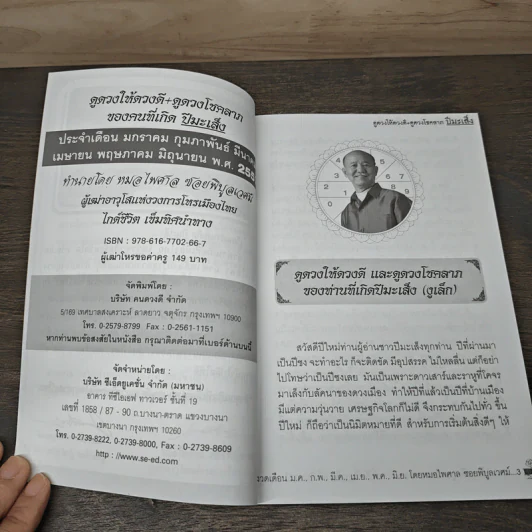 ดูดวงให้ดวงดี+ดูดวงโชคลาภ
ของคนที่เกิด ปีมะเส็ง
ประจำเดือน มกราคม กุมภาพันธ์ มีนาคม
เมษายน พฤษภาคม มิถุนายน พ.ศ.
ทำนายโดย หมอไพศาล ซอยพิบูลเวศม์
ผู้เฒ่าอาวุโสแห่งวงการโหรเมืองไทย
ไกด์ชีวิต เข็มทิศนำทาง
ISBN : 978-616-7702-66-7
ผู้เฒ่าโหรขอค่าครู 149 บาท
จัดพิมพ์โดย :
บริษัท คนดวงดี จำกัด
5/169 เทศบาลสงเคราะห์ ลาดยาว จตุจักร กรุงเทพฯ 10900
โทร. 0-2579-8799 Fax : 0-2561-1151
หากท่านพบข้อสงสัยในหนังสือ กรุณาติดต่อมาที่เบอร์ด้านบนนี้
จัดจำหน่ายโดย :
บริษัท ซีเอ็ดยูเคชั่น จำกัด (มหาชน)
อาคาร ทีซีไอเอฟ ทาวเวอร์ ชั้นที่ 19
เลขที่ 1858 / 87 - 90 ถ.บางนา-ตราด แขวงบางนา
เขตบางนา กรุงเทพฯ 10260
โทร. 0-2739-8222, 0-2739-8000, Fax : 0-2739-8609
http : //www.se-ed.com
ดูดวงให้ดวงดี+ดูดวงโชคลาภ ปีมะเส็ง
ดูดวงให้ดวงดี และดูดวงโชคลาภ
ของท่านที่เกิดปีมะเส็ง (งูเล็ก)
สวัสดีปีใหม่ท่านผู้อ่านชาวปีมะเส็งทุกท่าน ปีที่ผ่านมา
เป็นปีชง จะทำอะไร ก็จะติดขัด มีอุปสรรค ไม่ไหลลื่น แต่ก็อย่า
ไปโทษว่าเป็นปีชงเลย มันเป็นเพราะดาวเสาร์และราหูที่โคจร
มาเล็งกับลัคนาของดวงเมือง ทำให้ปีที่แล้วเป็นปีที่บ้านเมือง
มีแต่ความวุ่นวาย เศรษฐกิจโลกก็ไม่ดี จึงกระทบกันไปทั่ว ขึ้น
ปีใหม่ ก็ถือว่าเป็นนิมิตหมายที่ดี สำหรับการเริ่มต้นสิ่งดีๆ ให้
ม.ค., ก.พ., มี.ค., เม.ย., พ.ค., มิ.ย. โดยหมอไพศาล ซอยพิบูลเวศม์...3